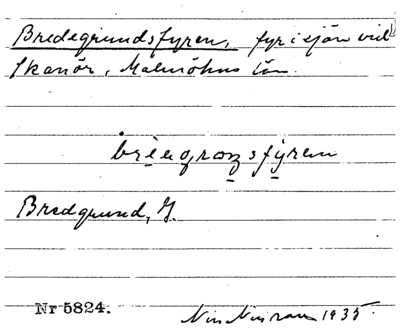 Bredegrundsfyren, fyr i sjön vid
Skanör, Malmöhus län.
brèegronsfýren
Bredgrund, G.
Nr 5824.
1935